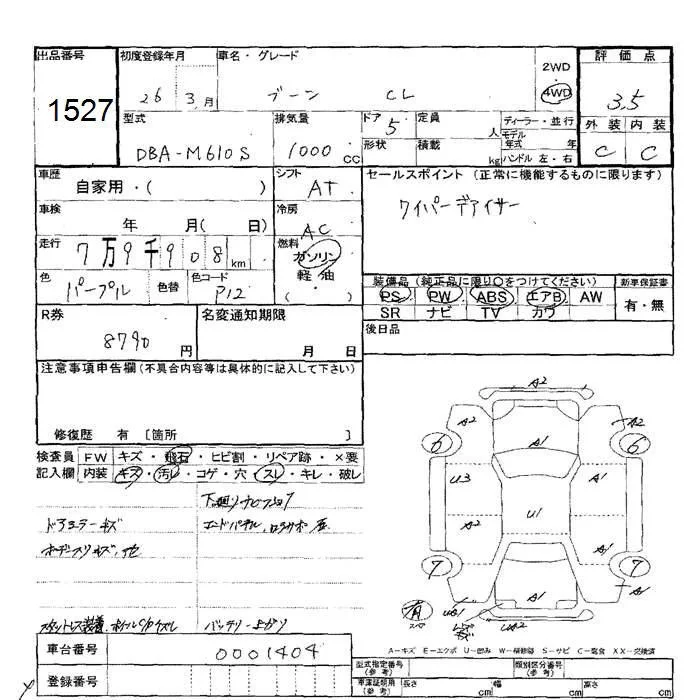 出品番号 初度登録年月 車名・グレード 2WD 評価点
1527 26 3月 ブーン CL 4WD 3.5
型式 排気量 ドア 5 定員 人 ディーラー・並行 外装 内装
DBA-M610S 1000cc 形状 積載 kg モデル年式 年 ハンドル 左・右 C C
車歴 自家用・( ) シフト AT セールスポイント (正常に機能するものに限ります)
車検 年 月( 日) 冷房 AC ワイパーデアイサー
走行 7万9千908km 燃料 ガソリン 軽油 ( )
色 パープル 色替 色コード P12 装備品 (純正品に限り○をつけてください) 新車保証書
PS PW ABS エアB AW 有・無
SR ナビ TV カワ
R券 8790円 名変通知期限 月 日 後日品
注意事項申告欄(不具合内容等は具体的に記入して下さい)
修復歴 有 〔箇所 〕
検査員 FW キズ・飛石・ヒビ割・リペア跡・×要
記入欄 内装 キズ・汚レ・コゲ・穴・スレ・キレ・破レ
ドアミラーキズ
エンドパネル
A2
A2 A2
6 A1 6
U3 A1
A2 U1 A1
7 A1 7
A1 A1
有 スペア UA2
A-キズ E-エクボ U-凹み W-補修跡 S-サビ C-腐食 XX-交換済
車台番号 0001404 型式指定番号(参考) 類別区分番号(参考)
登録番号 車庫証明用(参考) 長さ cm 幅 cm 高さ cm